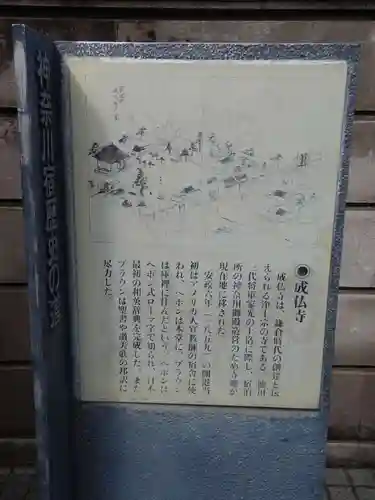 神奈川宿歴史の道
●成仏寺
成仏寺は、鎌倉時代の創建と伝
えられる浄土宗の寺である。徳川
三代将軍家光の上洛に際し、宿泊
所の神奈川御殿造営のため寺地が
現在地に移された。
安政六年(一八五九)の開港当
初はアメリカ人宣教師の宿舎に使
われ、ヘボンは本堂に、ブラウン
は庫裡に住んだという。ヘボンは
「ヘボン式ローマ字」で知られ、日本
最初の和英辞典を完成した。また
ブラウンは聖書や讃美歌の邦訳に
尽力した。